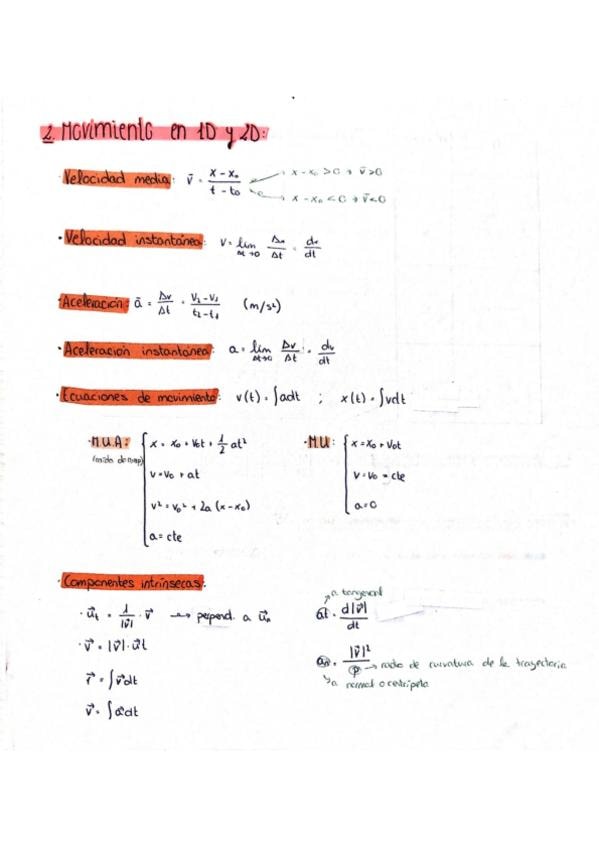 2. Movimiento en 1D y 2D:
· Velocidad media: v̄ = (x - x₀)/(t - t₀) → x - x₀ > 0 → v̄ > 0
→ x - x₀ < 0 → v̄ < 0
· Velocidad instantánea: v = lim Δt→0 Δx/Δt = dx/dt
· Aceleración: ā = Δv/Δt = (v₂ - v₁)/(t₂ - t₁) (m/s²)
· Aceleración instantánea: a = lim Δt→0 Δv/Δt = dv/dt
· Ecuaciones de movimiento: v(t) = ∫adt ; x(t) = ∫vdt
· M.U.A: { x = x₀ + v₀t + 1/2 at²
v = v₀ + at
v² = v₀² + 2a (x - x₀)
a = cte
· MU: { x = x₀ + v₀t
v = v₀ = cte
a = 0
· Componentes intrínsecas:
· u⃗t = 1/|v⃗| · v⃗ → perpend. a u⃗n
· v⃗ = |v⃗| · u⃗t
r⃗ = ∫v⃗dt
v⃗ = ∫a⃗dt
a tangencial
at = d|v⃗|/dt
an = |v⃗|²/ρ → radio de curvatura de la trayectoria
a normal o centrípeta